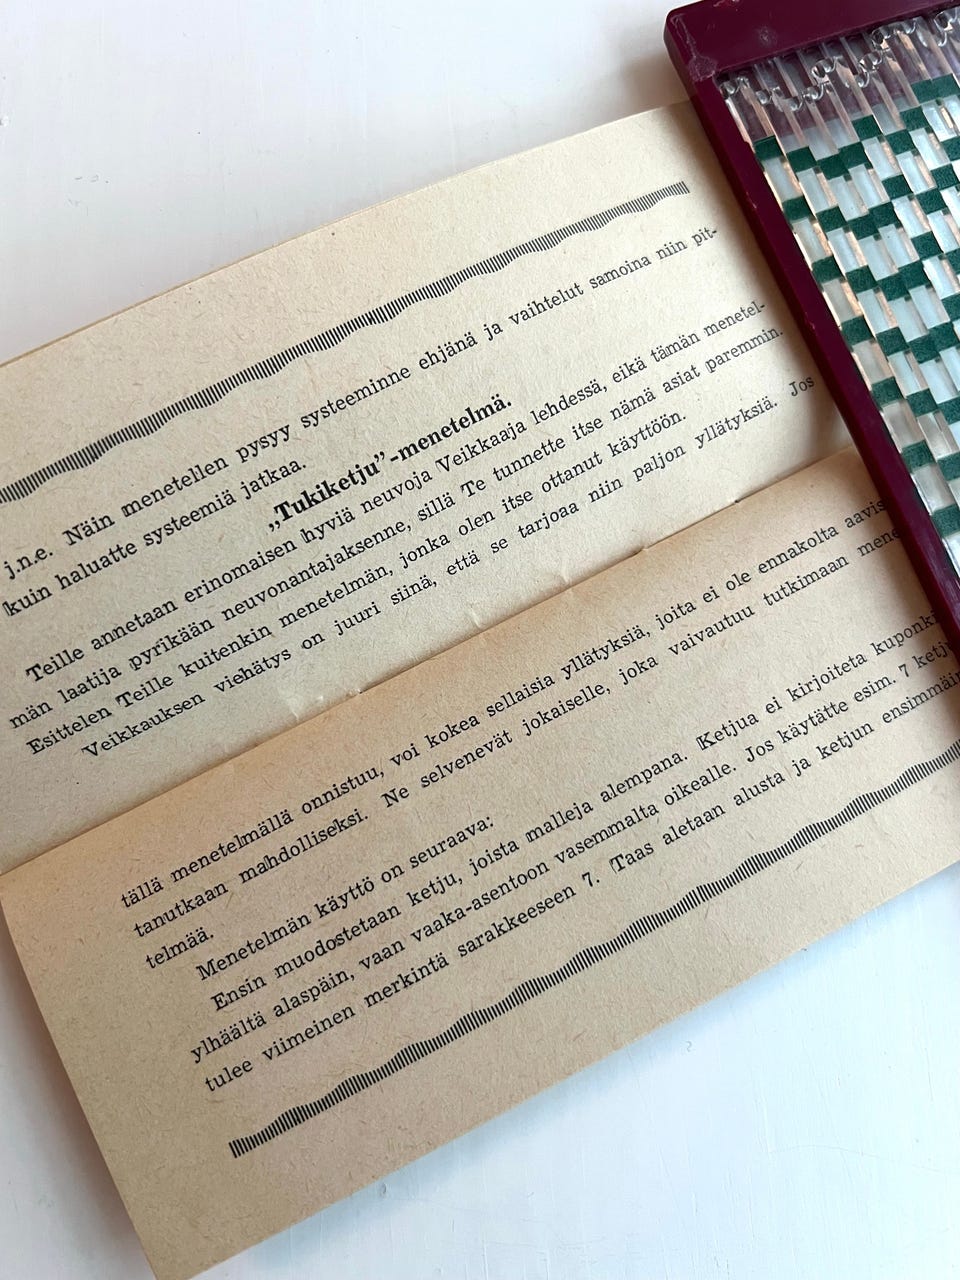 j.n.e. Näin menetellen pysyy systeeminne ehjänä ja vaihtelut samoina niin pit-
kuin haluatte systeemiä jatkaa.
„Tukiketju”-menetelmä.
Teille annetaan erinomaisen hyviä neuvoja Veikkaaja lehdessä, eikä tämän menetel-
män laatija pyrikään neuvonantajaksenne, sillä Te tunnette itse nämä asiat paremmin.
Esittelen Teille kuitenkin menetelmän, jonka olen itse ottanut käyttöön.
Veikkauksen viehätys on juuri siinä, että se tarjoaa niin paljon yllätyksiä. Jos
tällä menetelmällä onnistuu, voi kokea sellaisia yllätyksiä, joita ei ole ennakolta
tanutkaan mahdolliseksi. Ne selvenevät jokaiselle, joka vaivautuu tutkimaan
telmää.
Menetelmän käyttö on seuraava:
Ensin muodostetaan ketju, joista malleja alempana. Ketjua ei kirjoiteta
ylhäältä alaspäin, vaan vaaka-asentoon vasemmalta oikealle. Jos käytätte esim. 7
tulee viimeinen merkintä sarakkeeseen 7. Taas aletaan alusta ja ketjun